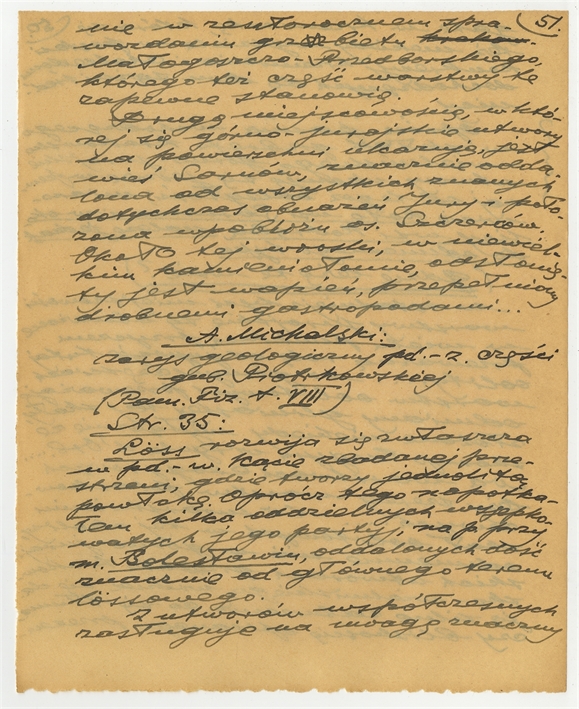 51.
nie w zeszłorocznem spra-
wozdaniu grzbietu
Małogoszczo-Przedborskiego,
którego też część warstwy te
zapewne stanowią.
Drugą miejscowością, w któ-
rej się górno-jurajskie utwory
na powierzchni ukazują, jest
wieś Sarnów, znacznie odda-
lona od wszystkich znanych
dotychczas obnażeń Jury i poło-
żona w pobliżu os. Szczerców.
Około tej wioski, w niewiel-
kim kamieniołomie, odsłonię-
ty jest wapień, przepełniony
drobnemi gastropodami...
A. Michalski:
zarys geologiczny pd.-z. części
gub. Piotrkowskiej
(Pam. Fiz. t. VIII)
Str. 35:
Löss rozwija się zwłaszcza
w pd.-w. kącie zbadanej prze-
strzeni, gdzie tworzy jednolitą
powłokę. Oprócz tego napotka-
łem kilka oddzielnych wysepko-
watych jego partyj, na p. przy
m. Bolesławiu, oddalonych dość
znacznie od głównego terenu
lössowego.
Z utworów współczesnych
zasługuje na uwagę znaczny